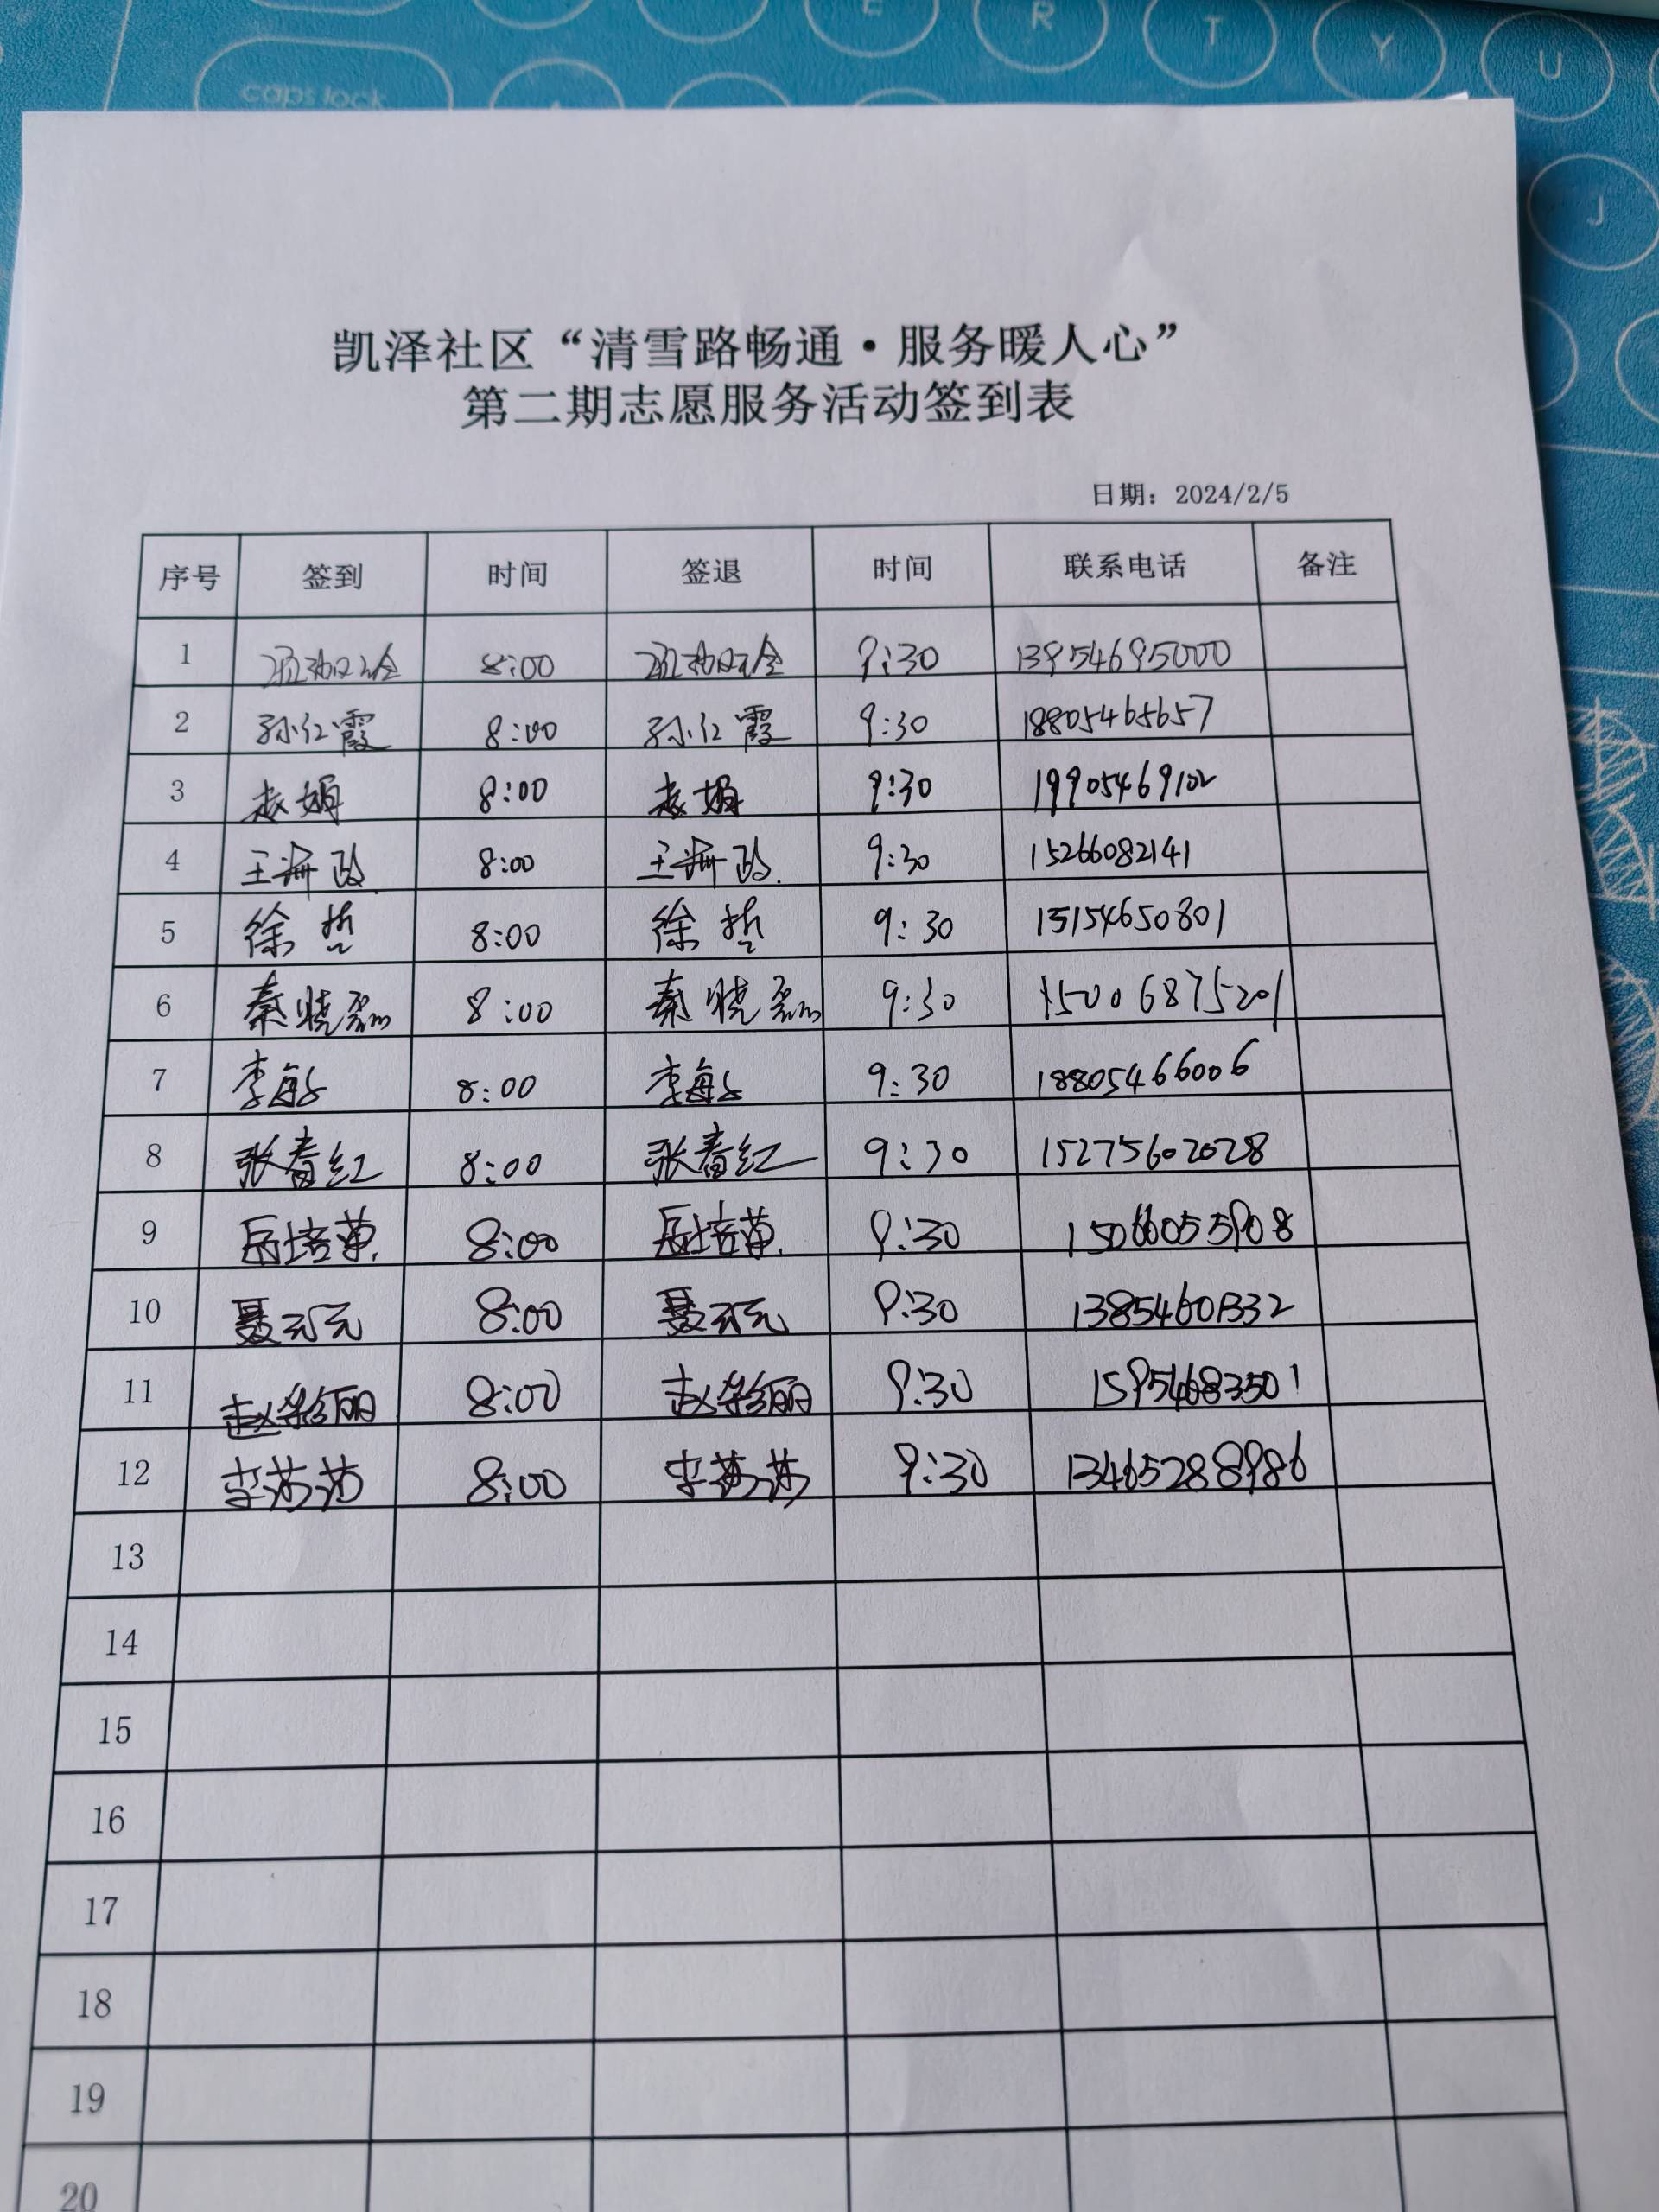 caps lock
E R T Y U
J
凯泽社区“清雪路畅通·服务暖人心”
第二期志愿服务活动签到表
日期：2024/2/5
序号 签到 时间 签退 时间 联系电话 备注
1 8:00 9:30 13954695000
2 孙红霞 8:00 孙红霞 9:30 18805465657
3 赵娟 8:00 赵娟 9:30 19905469102
4 王 8:00 王 9:30 15266082141
5 徐哲 8:00 徐哲 9:30 13154650801
6 秦晓磊 8:00 秦晓磊 9:30 15006875201
7 李敏 8:00 李敏 9:30 18805466006
8 张春红 8:00 张春红 9:30 15275602028
9 岳培 8:00 岳培 9:30 15066055908
10 聂元元 8:00 聂元元 9:30 13854601332
11 赵彩丽 8:00 赵彩丽 9:30 15954683501
12 李莎莎 8:00 李莎莎 9:30 13465288986
13
14
15
16
17
18
19
20